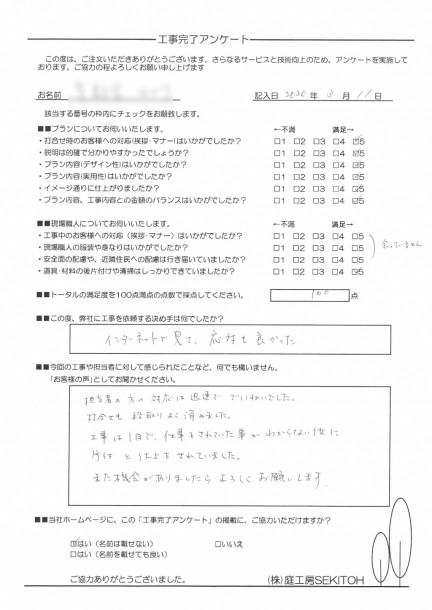 工事完了アンケート
この度は、ご注文いただきありがとうございます。さらなるサービスと技術向上のため、アンケートを実施して
おります。ご協力の程よろしくお願い申し上げます
お名前 記入日 2020 年 3 月 11 日
該当する番号の枠内にチェックをお願致します。
■■プランについてお伺いいたします。 ←不満 満足→
・打合せ時のお客様への対応(挨拶・マナー)はいかがでしたか? □1 □2 □3 □4 ☑5
・説明は的確で分かりやすかったでしょうか? □1 □2 □3 □4 ☑5
・プラン内容(デザイン性)はいかがでしたか? □1 □2 □3 □4 ☑5
・プラン内容(実用性)はいかがでしたか? □1 □2 □3 □4 ☑5
・イメージ通りに仕上がりましたか? □1 □2 □3 □4 ☑5
・プラン内容、工事内容との金額のバランスはいかがでしたか? □1 □2 □3 □4 ☑5
■■現場職人についてお伺いいたします。 ←不満 満足→
・工事中のお客様への対応(挨拶・マナー)はいかがでしたか? □1 □2 □3 □4 □5
・現場職人の服装や身なりはいかがでしたか? □1 □2 □3 □4 □5 会っていません
・安全面の配慮や、近隣住民への配慮は行き届いていましたか? □1 □2 □3 □4 □5
・道具・材料の後片付けや清掃はしっかりできていましたか? □1 □2 □3 □4 ☑5
■■トータルの満足度を100点満点の点数で採点してください。 100 点
■■この度、弊社に工事を依頼する決め手は何でしたか?
インターネットで見て、応対も良かった
■■今回の工事や担当者に対して感じられたことなど、何でも構いません。
「お客様の声」としてお聞かせください。
担当者の方の対応は迅速で ていねいでした。
打合せも 段取りよく済みました。
工事は1日で、仕事をされていた事が わからない位に
片付 と仕上を されていました。
また機会がありましたら よろしく お願いします。
■■当社ホームページに、この「工事完了アンケート」の掲載に、ご協力いただけますか?
☑はい(名前は載せない) □いいえ
□はい(名前を載せても良い)
ご協力ありがとうございました。 (株)庭工房SEKITOH